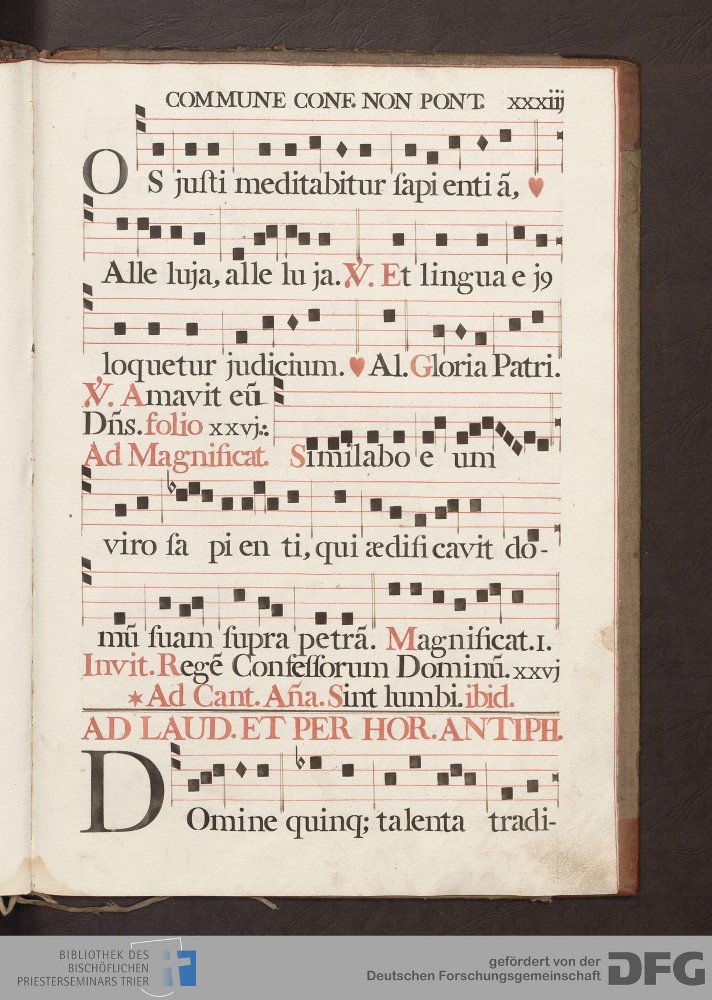 COMMUNE CONF. NON PONT. xxxiij
OS juſti meditabitur ſapi enti ã, ♥
Alle luja, alle lu ja. ℣. Et lingua e j9
loquetur judicium. ♥ Al. Gloria Patri.
℣. Amavit eũ
Dñs. folio xxvj:.
Ad Magnificat. Similabo e um
viro ſa pi en ti, qui ædifi cavit do-
mũ ſuam ſupra petrã. Magnificat. 1.
Invit. Regẽ Confeſſorum Dominũ. xxvj
✶ Ad Cant. Aña. Sint lumbi. ibid.
AD LAUD. ET PER HOR. ANTIPH.
Domine quinq; talenta tradi-
BIBLIOTHEK DES
BISCHÖFLICHEN
PRIESTERSEMINARS TRIER
gefördert von der
Deutschen Forschungsgemeinschaft
DFG